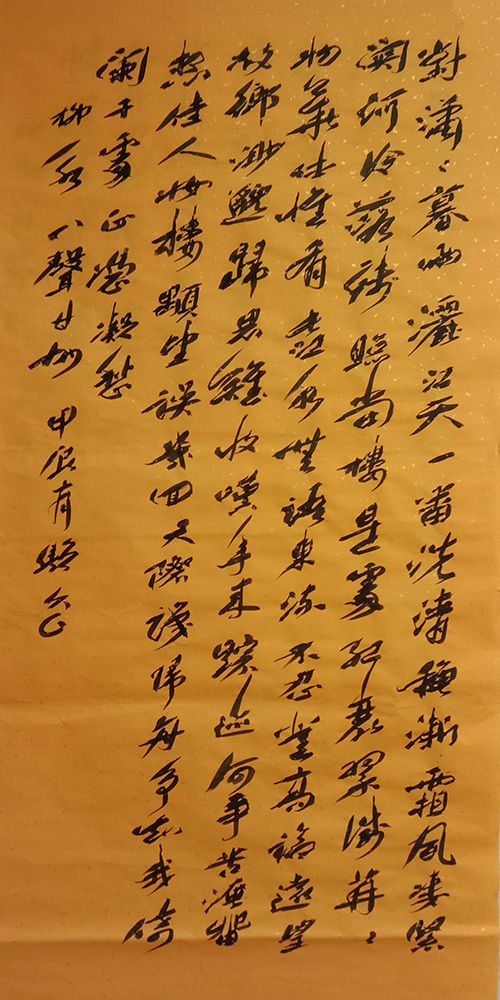 對瀟々暮雨灑江天一番洗清穐漸霜風凄緊
關河冷落殘照當樓是處紅衰翠減苒々
物華休惟有長江水無語東流不忍登高臨遠望
故鄉渺邈歸思難收嘆年來踪迹何事苦淹留
想佳人妝樓顒望誤幾回天際識歸舟爭知我倚
闌干處正恁凝愁
柳永八聲甘州 甲辰有